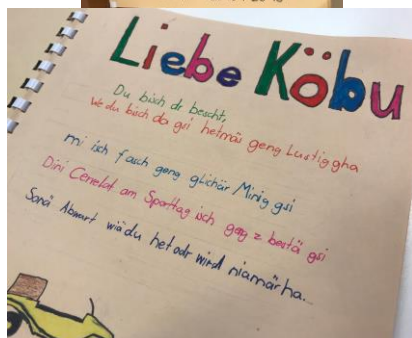 Liebe Köbu
Du bisch dr bescht,
We du bisch da gsi hetmäs geng Lustig gha
mi isch fasch geng glichär Minig gsi
Dini Cervelat am Sporttag isch geng z bestä gsi
Sonä Abwart wiä du het odr wird niamär ha.